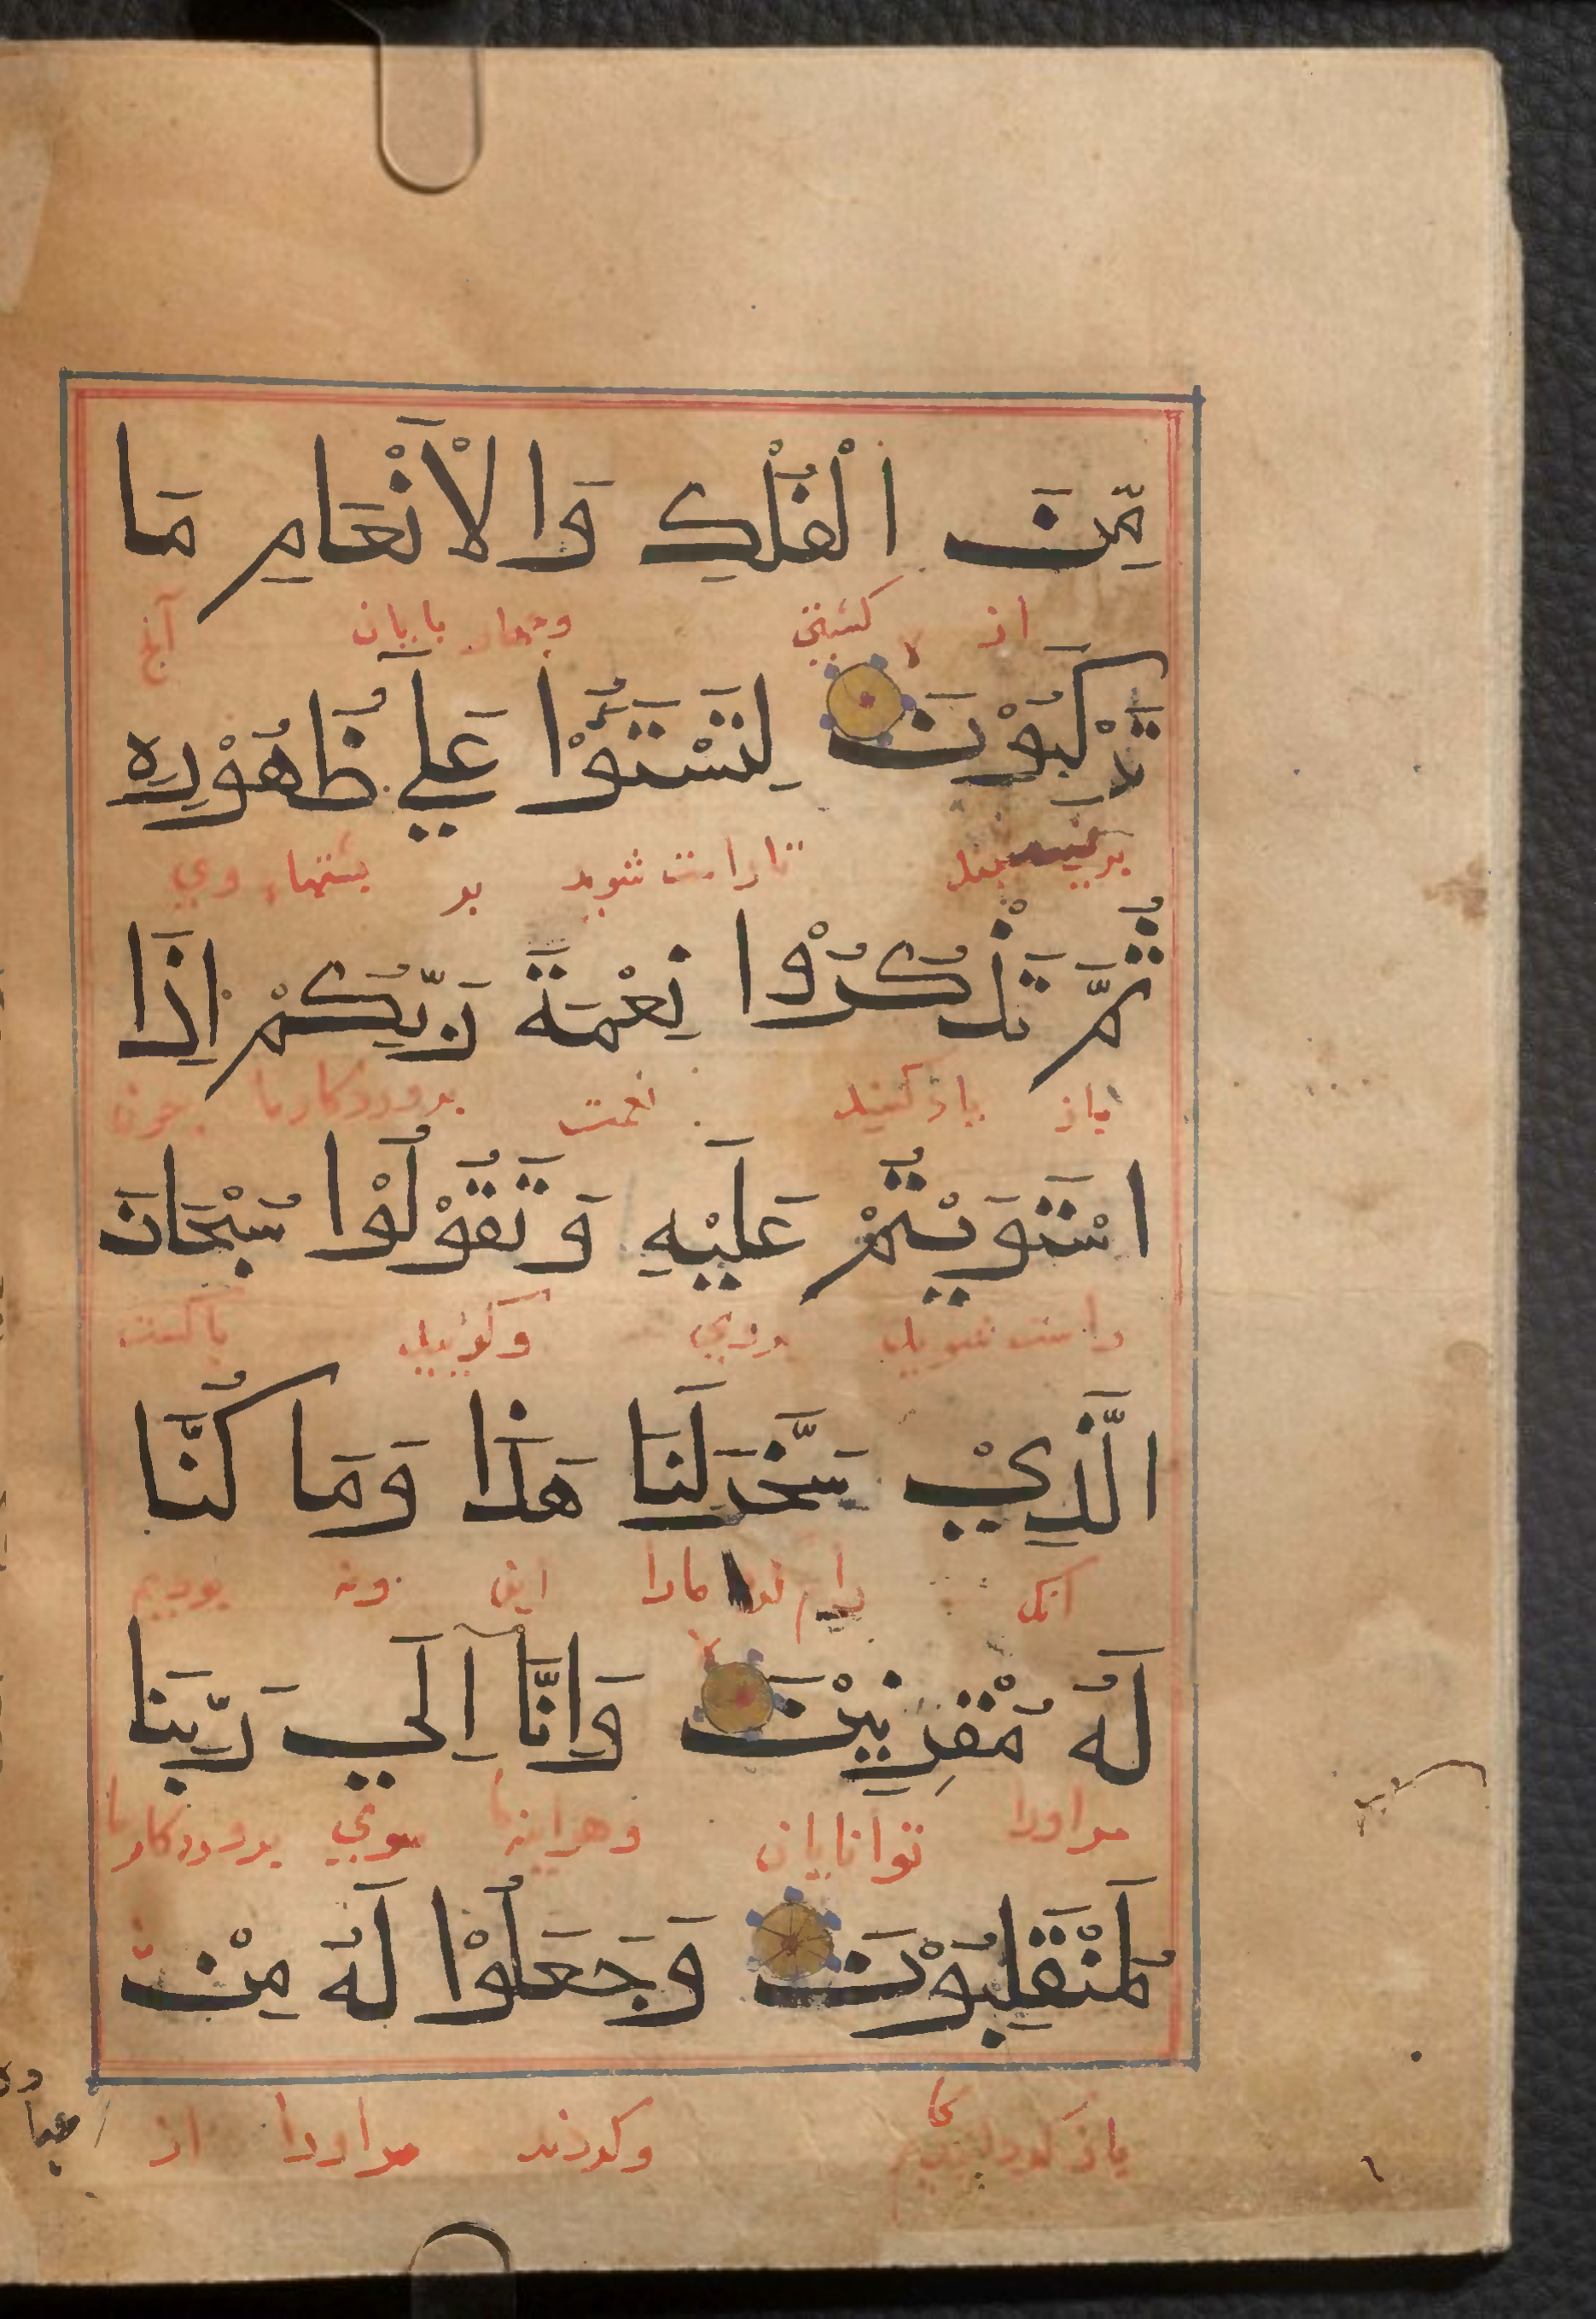 مِّنَ الْفُلْكِ وَالْاَنْعَامِ مَا
از کشتی وچهار بایان آنج
تَرْكَبُوْنَ لِتَسْتَوُٗا عَلَي ظُهُوْرِهِ
بر تاراست شوید بر بشتهاء وي
ثُمَّ تَذْكُرُوْا نِعْمَةَ رَبِّكُمْ اِذَا
باز یاذ کنید نعمت بروردکارما جون
اسْتَوَيْتُمْ عَلَيْهِ وَتَقُوْلُوْا سُبْحَانَ
راست شوید بروي وکوئید باکست
الَّذِيْ سَخَّرَ لَنَا هَذَا وَمَا كُنَّا
آنک رام مارا این ونه بودیم
لَهُ مُقْرِنِيْنَ وَاِنَّا اِلَي رَبِّنَا
مراورا توانایان وهراینه ما سوي بروردکار ما
لَمُنْقَلِبُوْنَ وَجَعَلُوْا لَهُ مِنْ
باز وکردند مراورا از
عباده